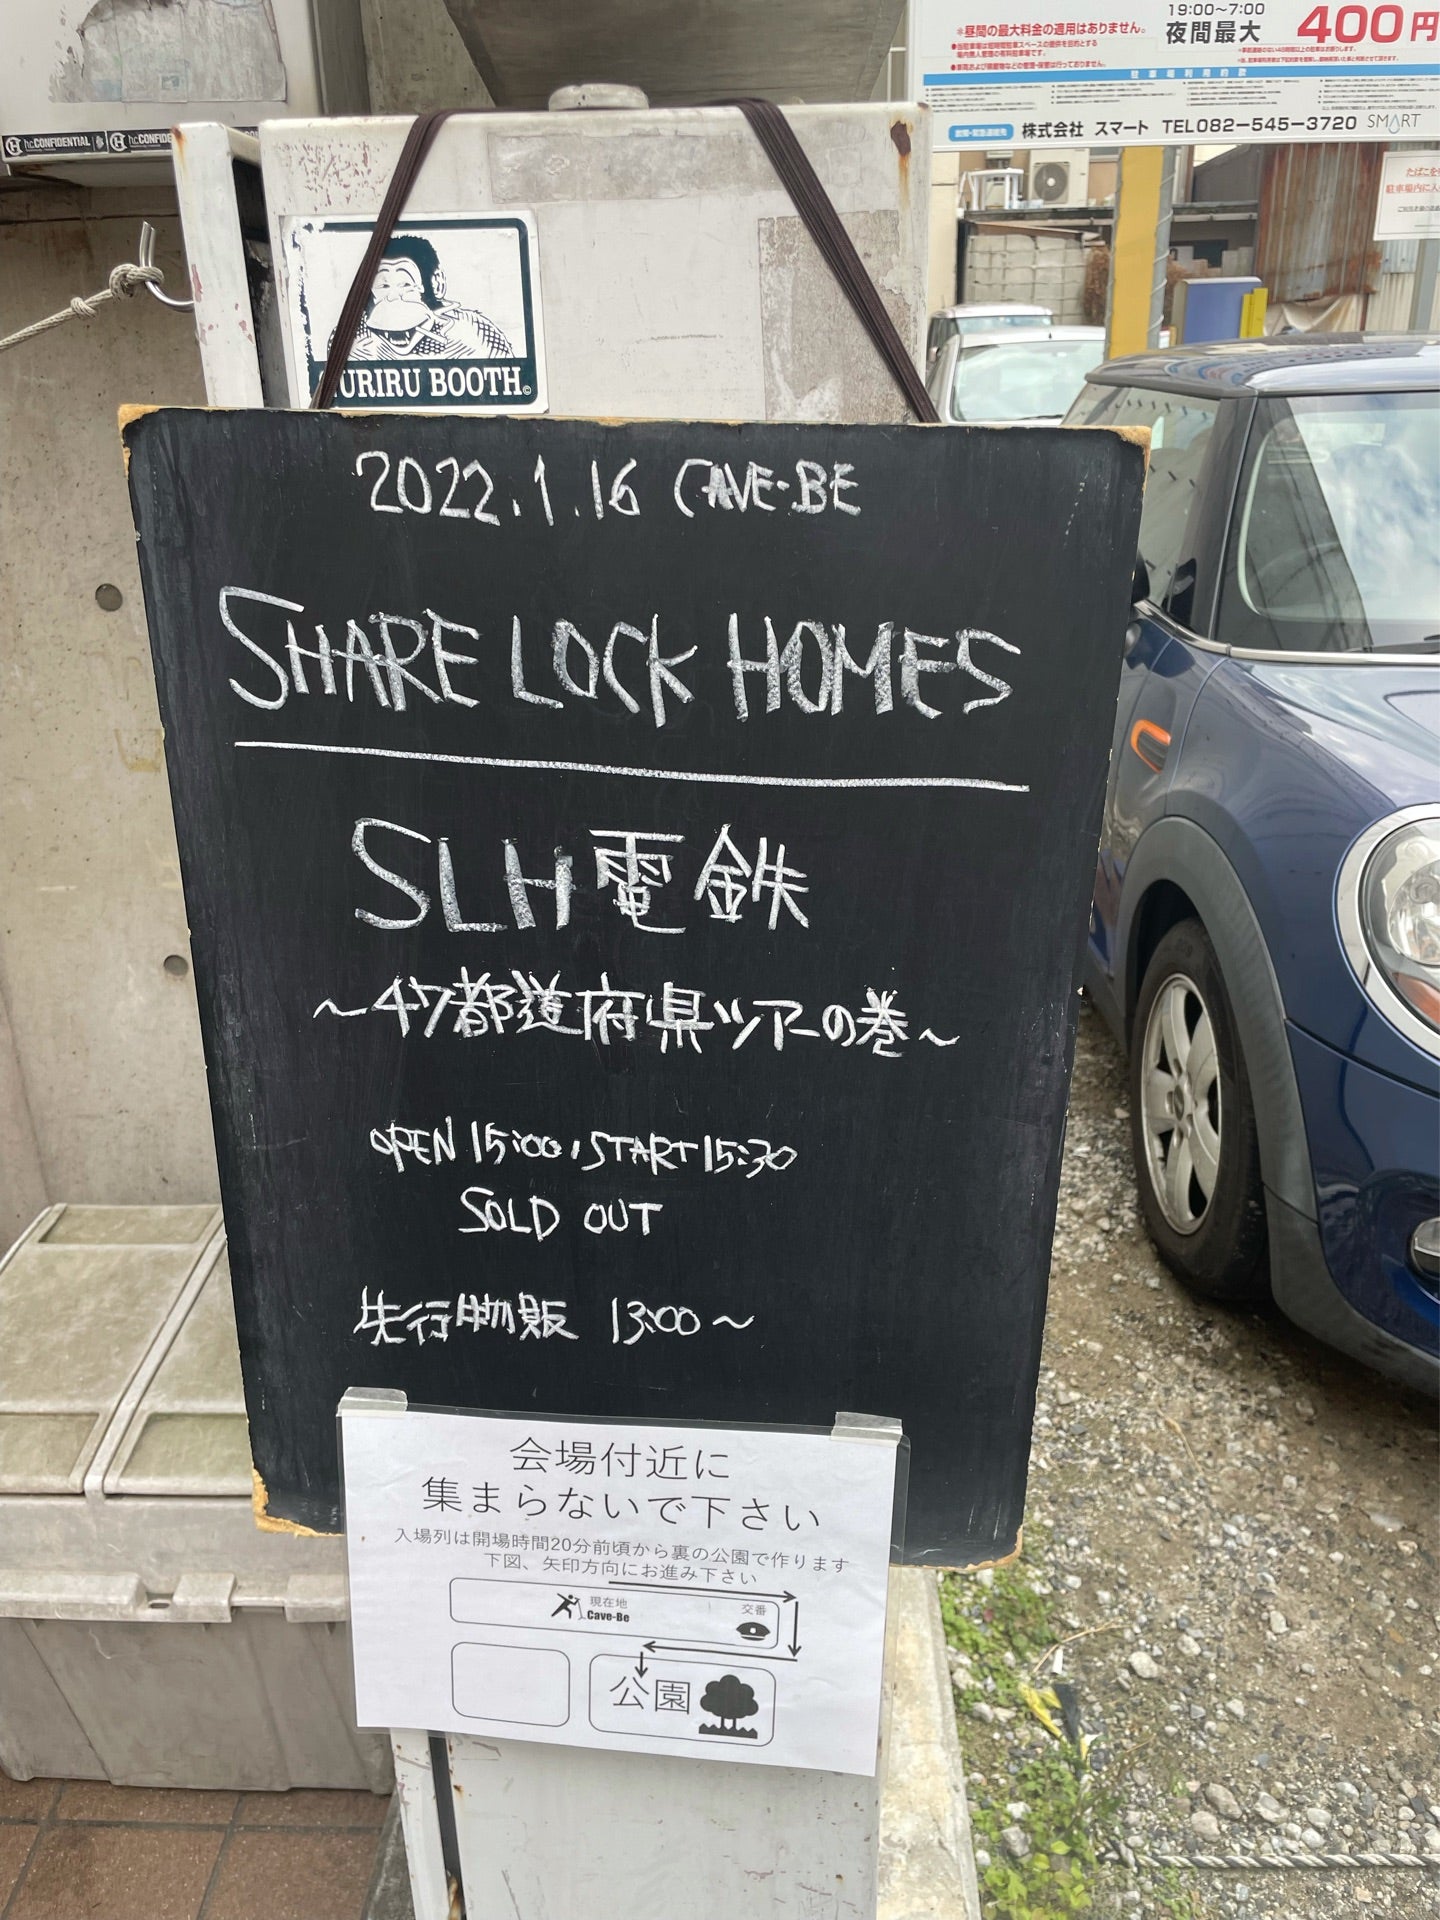 19:00〜7:00
夜間最大 400円
＊昼間の最大料金の適用はありません。
駐車場利用約款
株式会社 スマート TEL082-545-3720 SMART
hcCONFIDENTIAL
URIRU BOOTH©
2022.1.16 CAVE-BE
SHARE LOCK HOMES
SLH電鉄
〜47都道府県ツアーの巻〜
OPEN 15:00, START 15:30
SOLD OUT
先行物販 13:00〜
会場付近に
集まらないで下さい
入場列は開場時間20分前頃から裏の公園で作ります
下図、矢印方向にお進み下さい
現在地
Cave-Be
交番
公園